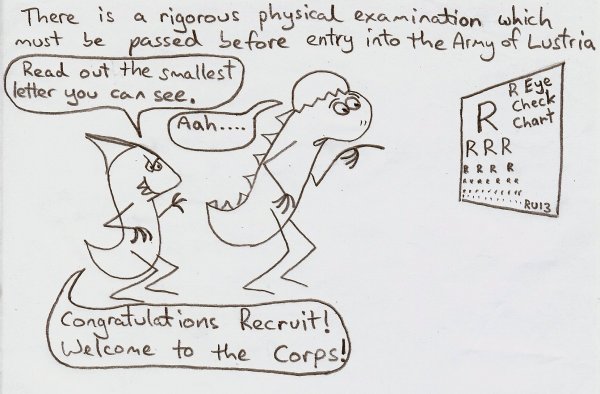 There is a rigorous physical examination which
must be passed before entry into the Army of Lustria
Read out the smallest
letter you can see.
Aah....
R Eye
Check
Chart
R
R R R
R R R R
R R R R R R
RU13
Congratulations Recruit!
Welcome to the Corps!